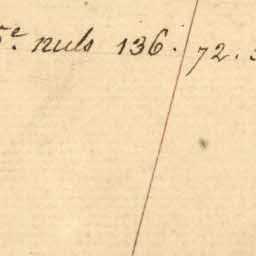 5.e nuls 136. 72.